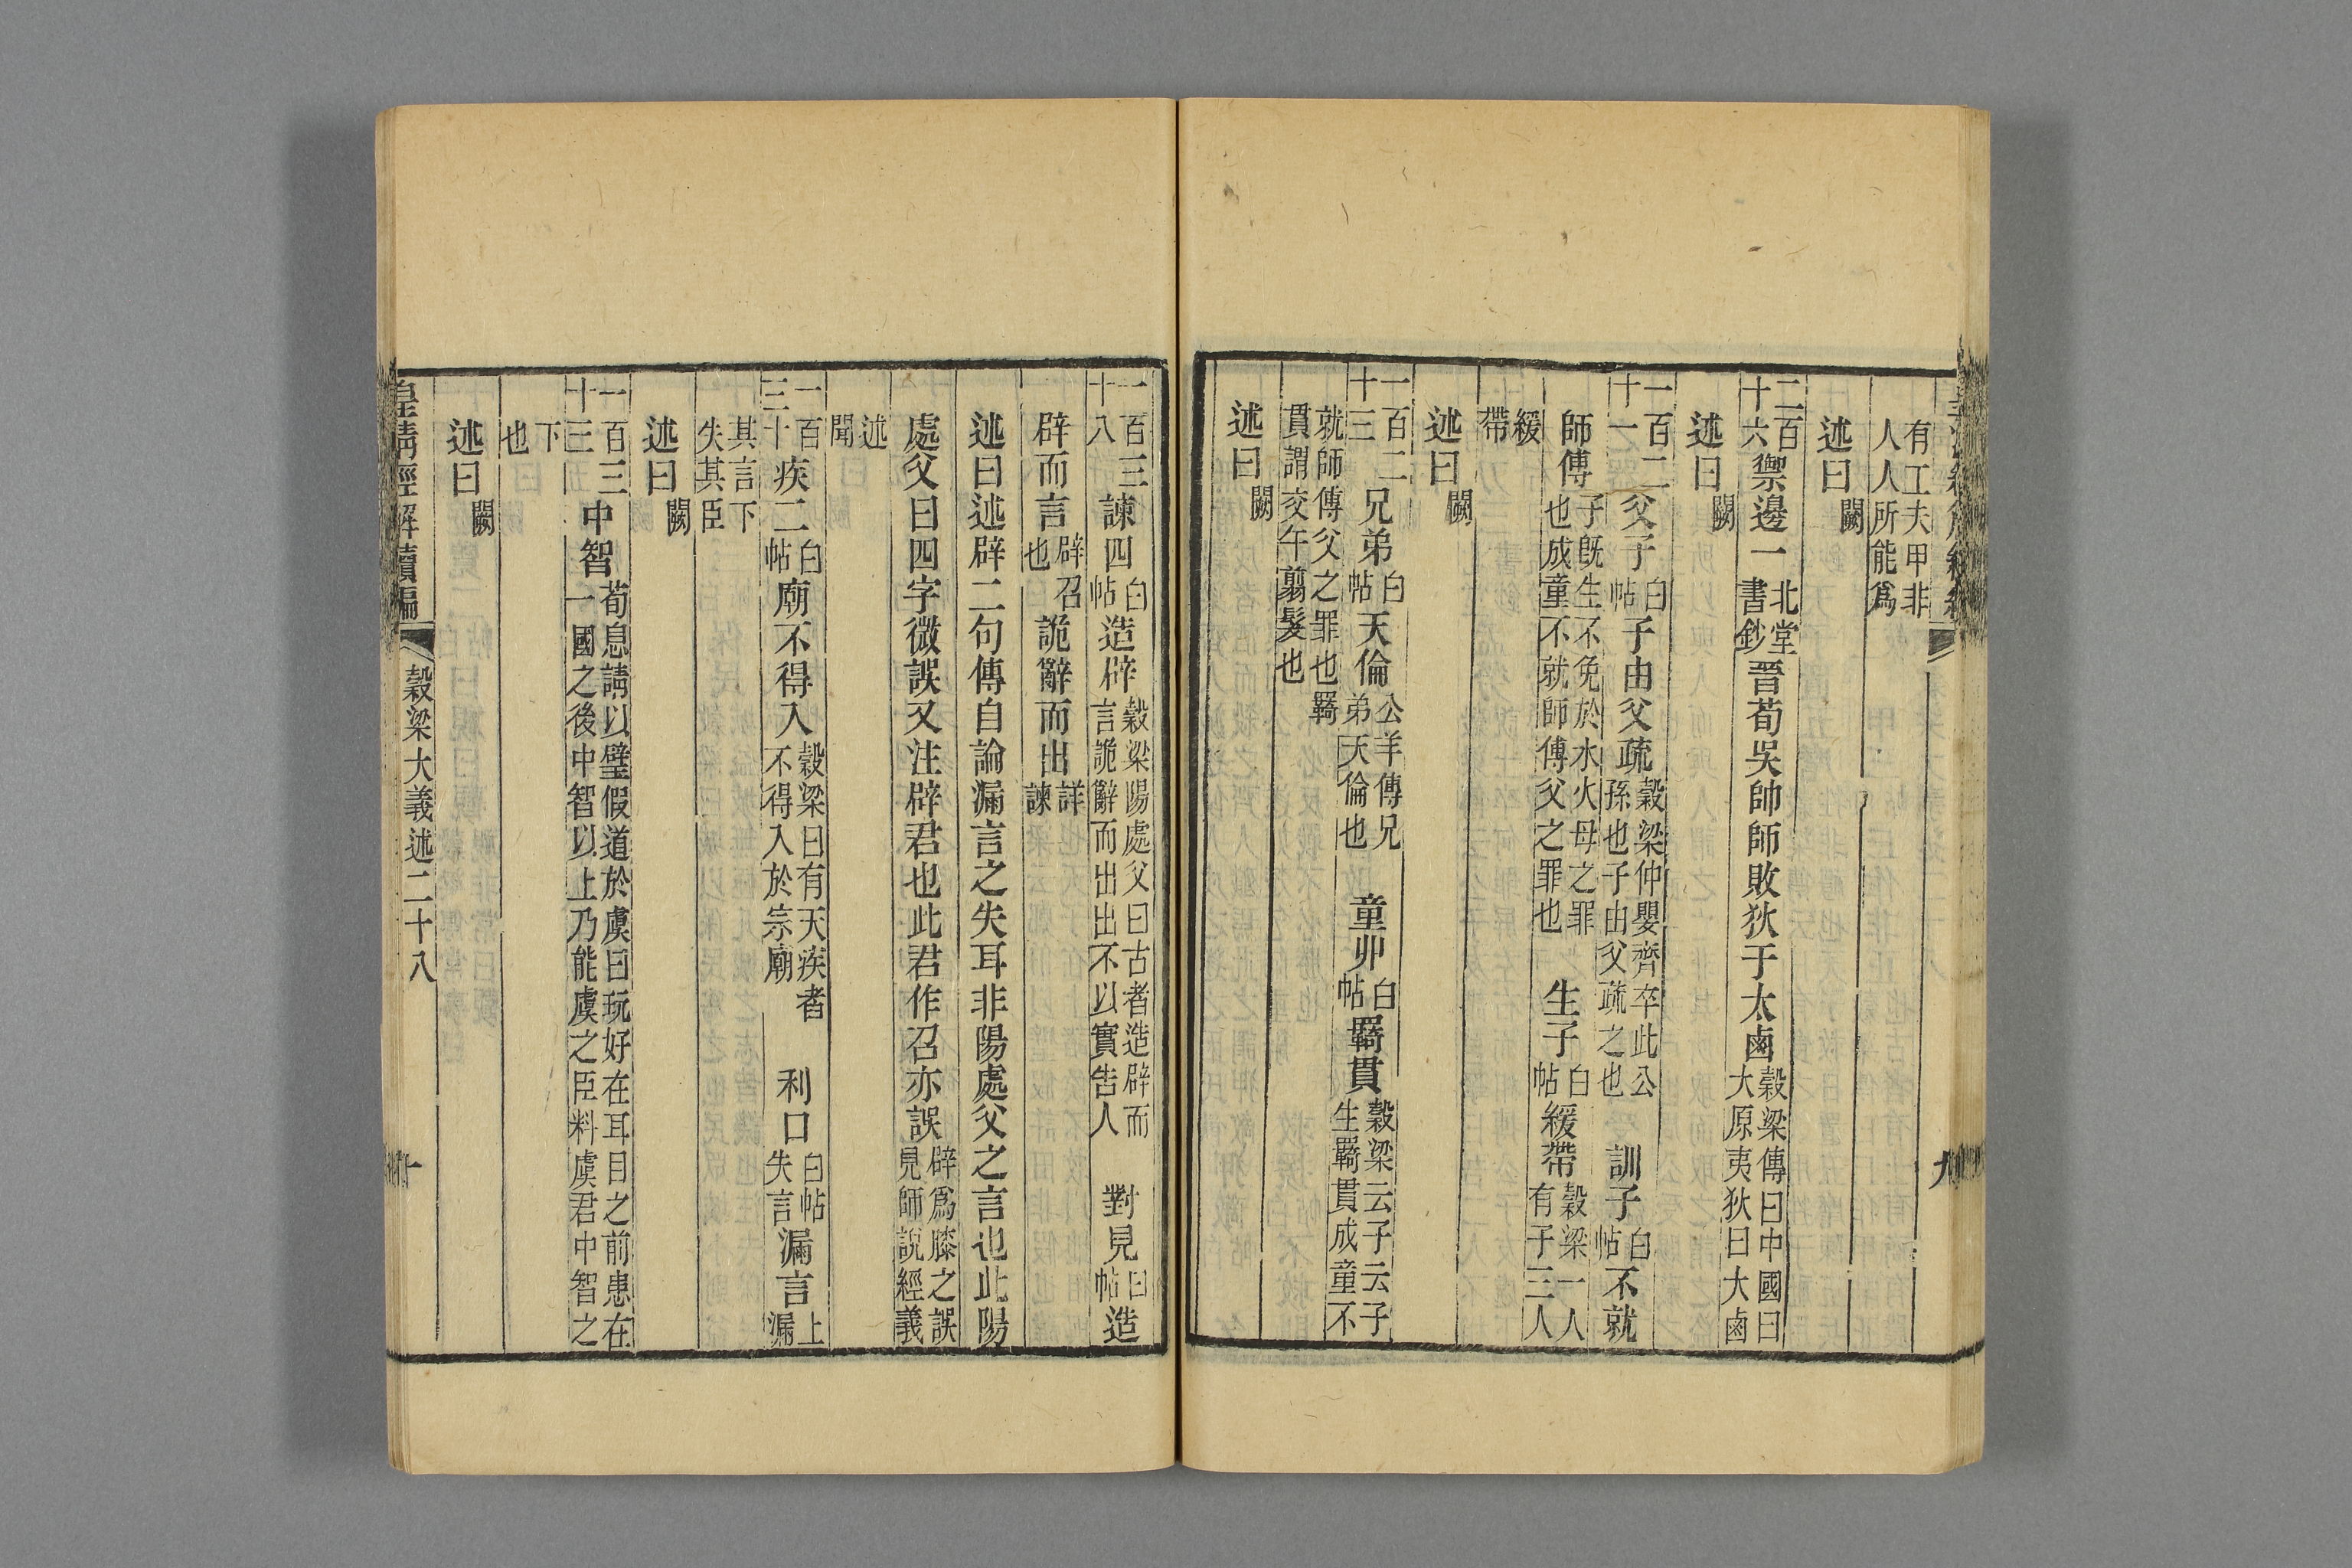 有工夫甲非
人人所能爲
述曰闕
二百十六禦邊一北堂書鈔晋荀吳帥師敗狄于太鹵穀梁傳曰中國曰大原夷狄曰大鹵
述曰闕
一百二十一父子白帖子由父疏穀梁仲嬰齊卒此公孫也子由父疏之也 訓子白帖不就
師傅子旣生不免於水火母之罪也成童不就師傅父之罪也 生子白帖緩帶穀梁一人有子三人
緩帶
述曰闕
一百二十三兄弟白帖天倫公羊傳兄弟天倫也 童丱白帖羈貫穀梁云子云子生羈貫成童不
就師傅父之罪也羈貫謂交午翦髮也
述曰闕
九
一百三十八諫四白帖造辟穀梁陽處父曰古者造辟而言詭辭而出出不以實告人 對見白帖造
辟而言辟召也詭辭而出詳諫
述曰述辟二句傳自論漏言之失耳非陽處父之言也此陽
處父曰四字微誤又注辟君也此君作召亦誤辟爲膝之誤見師說經義
述聞
一百三十三疾二白帖廟不得入穀梁曰有天疾者不得入於宗廟 利口白帖失言漏言上漏
其言下失其臣
述曰闕
一百三十三中智荀息請以璧假道於虞曰玩好在耳目之前患在一國之後中智以上乃能虞之臣料虞君中智之
下也
述曰闕
皇淸經解續編 穀梁大義述二十八 十